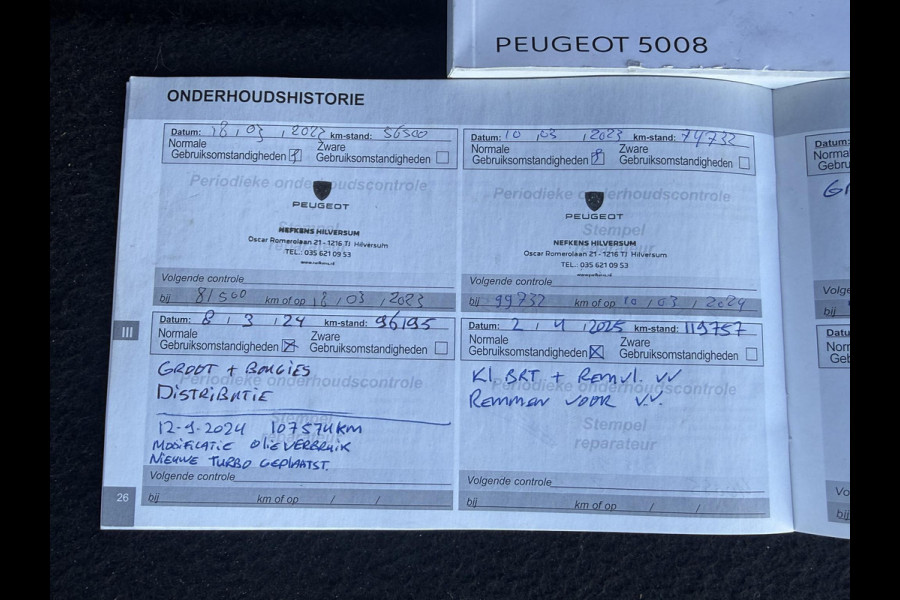 PEUGEOT 5008
ONDERHOUDSHISTORIE
Datum: 18 / 03 / 2022 km-stand: 56500
Normale Gebruiksomstandigheden
Zware Gebruiksomstandigheden
Periodieke onderhoudscontrole
PEUGEOT
NEFKENS HILVERSUM
Oscar Romerolaan 21 - 1216 TJ Hilversum
TEL.: 035 621 09 53
www.nefkens.nl
Volgende controle
bij 81500 km of op 18 / 03 / 2023
Datum: 10 / 03 / 2023 km-stand: 74732
Normale Gebruiksomstandigheden
Zware Gebruiksomstandigheden
Periodieke onderhoudscontrole
PEUGEOT
Stempel
reparateur
NEFKENS HILVERSUM
Oscar Romerolaan 21 - 1216 TJ Hilversum
TEL.: 035 621 09 53
www.nefkens.nl
Volgende controle
bij 99732 km of op 10 / 03 / 2024
III
Datum: 8 / 3 / 24 km-stand: 96195
Normale Gebruiksomstandigheden
Zware Gebruiksomstandigheden
GROOT + BOUGIES
Periodieke onderhoudscontrole
DISTRIBUTIE
Stempel
reparateur
12-9-2024 107574KM
MODIFICATIE OLIEVERBRUIK
NIEUWE TURBO GEPLAATST.
Volgende controle
bij km of op / /
Datum: 2 / 4 / 2025 km-stand: 119757
Normale Gebruiksomstandigheden
Zware Gebruiksomstandigheden
Kl. BRT + Remvl. VV
Periodieke onderhoudscontrole
Remmen VOOR V.V.
Stempel
reparateur
Volgende controle
bij km of op / /
26
Datum:
Norma
Gebru
Volg
bij
Datu
Norr
Geb
Vo
bij